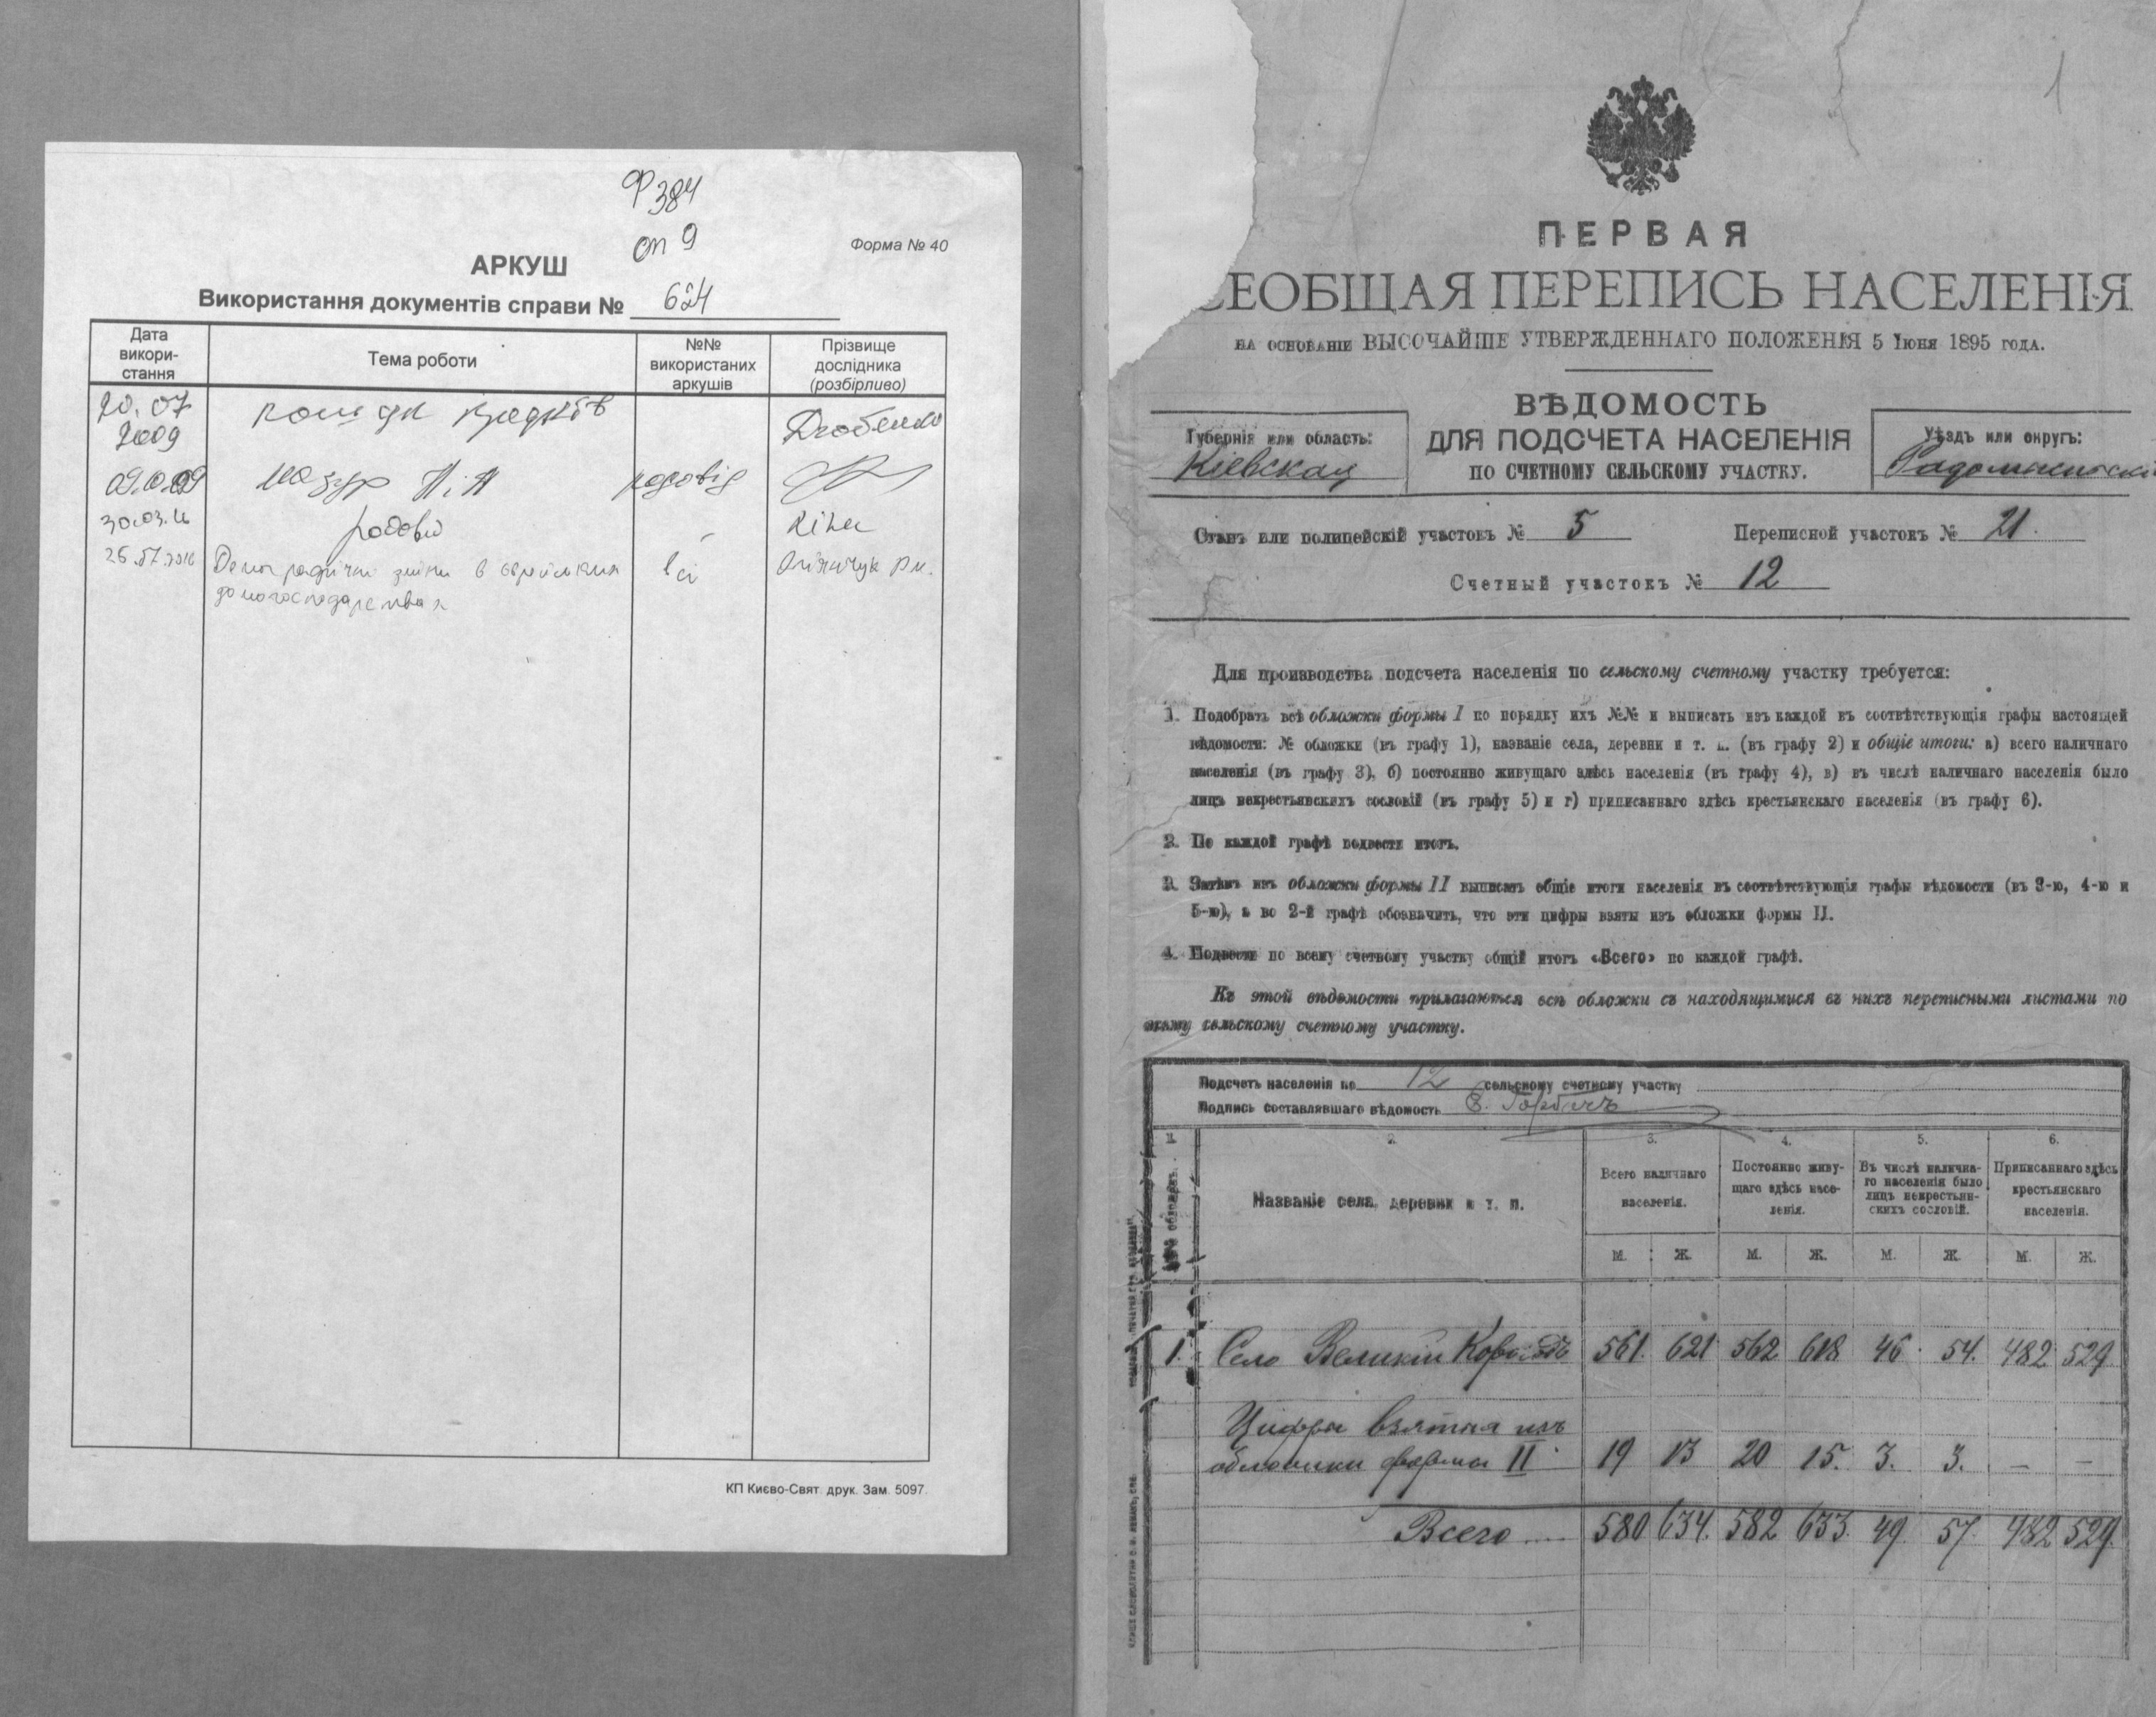 Ф 384
оп 9
Форма № 40
АРКУШ
Використання документів справи № 624
Дата використання
Тема роботи
№№ використаних аркушів
Прізвище дослідника (розбірливо)
20.07 2009 пошук предків
09.10.09 родовід
30.03.16 родовід
26.07.2016 Демографічні зміни в єврейських всі
домогосподарствах
КП Києво-Свят. друк. Зам. 5097.
1
ПЕРВАЯ
СЕОБЩАЯ ПЕРЕПИСЬ НАСЕЛЕНІЯ
НА ОСНОВАНІИ ВЫСОЧАЙШЕ УТВЕРЖДЕННАГО ПОЛОЖЕНІЯ 5 Іюня 1895 ГОДА.
Губернія или область:
Кіевская
ВѢДОМОСТЬ
ДЛЯ ПОДСЧЕТА НАСЕЛЕНІЯ
ПО СЧЕТНОМУ СЕЛЬСКОМУ УЧАСТКУ.
Уѣздъ или округъ:
Радомысльскій
Станъ или полицейскій участокъ № 5 Переписной участокъ № 21.
Счетный участокъ № 12
Для производства подсчета населенія по сельскому счетному участку требуется:
1. Подобрать всѣ обложки формы I по порядку ихъ №№ и выписать изъ каждой въ соотвѣтствующія графы настоящей
вѣдомости: № обложки (въ графу 1), названіе села, деревни и т. п. (въ графу 2) и общіе итоги: а) всего наличнаго
населенія (въ графу 3), б) постоянно живущаго здѣсь населенія (въ графу 4), в) въ числѣ наличнаго населенія было
лицъ некрестьянскихъ сословій (въ графу 5) и г) приписаннаго здѣсь крестьянскаго населенія (въ графу 6).
2. По каждой графѣ подвести итогъ.
3. Затѣмъ изъ обложки формы II выписать общіе итоги населенія въ соотвѣтствующія графы вѣдомости (въ 3-ю, 4-ю и
5-ю), а во 2-й графѣ обозначить, что эти цифры взяты изъ обложки формы II.
4. Подвести по всему счетному участку общій итогъ «Всего» по каждой графѣ.
Къ этой вѣдомости прилагаются всѣ обложки съ находящимися въ нихъ переписными листами по
всему сельскому счетному участку.
Подсчетъ населенія по 12 сельскому счетному участку
Подпись составлявшаго вѣдомость
1. 2. 3. 4. 5. 6.
№№ обложекъ.
Названіе села, деревни и т. п.
Всего наличнаго населенія.
Постоянно живущаго здѣсь населенія.
Въ числѣ наличнаго населенія было лицъ некрестьянскихъ сословій.
Приписаннаго здѣсь крестьянскаго населенія.
М. Ж. М. Ж. М. Ж. М. Ж.
1. Село Великій 561. 621 562 618 46. 54. 482 529.
Цифра взятая изъ
обложки формы II 19 13 20 15. 3. 3. — —
Всего 580 634. 582 633. 49. 57. 482 529.